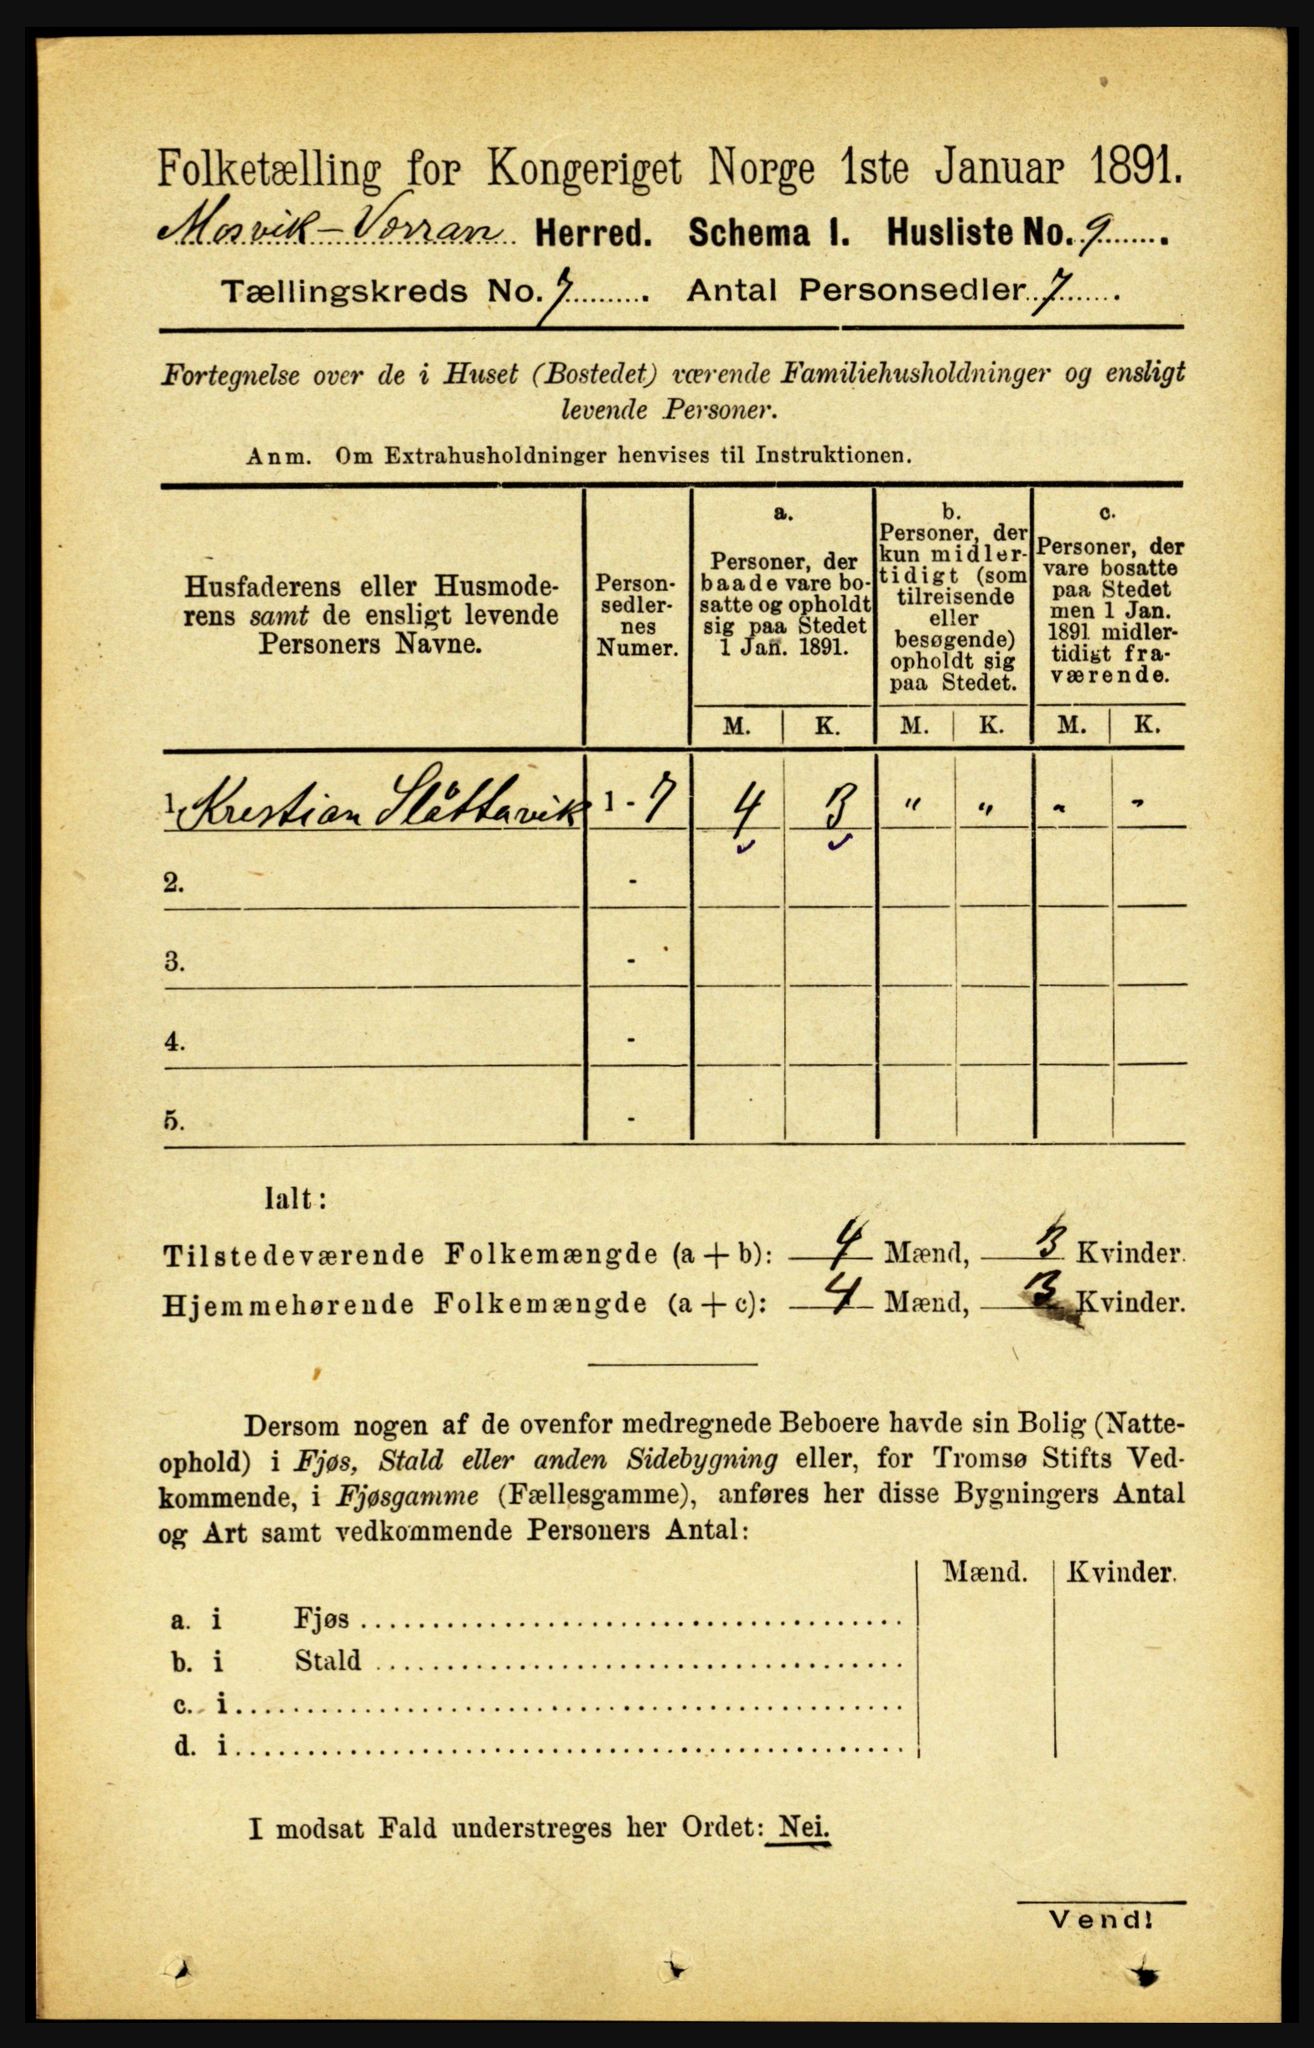 Folketælling for Kongeriget Norge 1ste Januar 1891.
Mosvik - Verran Herred. Schema I. Husliste No. 9.
Tællingskreds No. 7. Antal Personsedler 7.
Fortegnelse over de i Huset (Bostedet) værende Familiehusholdninger og ensligt
levende Personer.
Anm. Om Extrahusholdninger henvises til Instruktionen.
Husfaderens eller Husmode-
rens samt de ensligt levende
Personers Navne.
Person-
sedler-
nes
Numer.
a.
Personer, der
baade vare bo-
satte og opholdt
sig paa Stedet
1 Jan. 1891.
b.
Personer, der
kun midler-
tidigt (som
tilreisende
eller
besøgende)
opholdt sig
paa Stedet.
c.
Personer, der
vare bosatte
paa Stedet
men 1 Jan.
1891 midler-
tidigt fra-
værende.
M. K. M. K. M. K.
1. Krestian Slåttavik 1 - 7 4 3 " " " "
2. -
3. -
4. -
5. -
Ialt:
Tilstedeværende Folkemængde (a + b): 4 Mænd, 3 Kvinder.
Hjemmehørende Folkemængde (a + c): 4 Mænd, 3 Kvinder.
Dersom nogen af de ovenfor medregnede Beboere havde sin Bolig (Natte-
ophold) i Fjøs, Stald eller anden Sidebygning eller, for Tromsø Stifts Ved-
kommende, i Fjøsgamme (Fællesgamme), anføres her disse Bygningers Antal
og Art samt vedkommende Personers Antal:
Mænd. Kvinder.
a. i Fjøs
b. i Stald
c. i
d. i
I modsat Fald understreges her Ordet: Nei.
Vend!